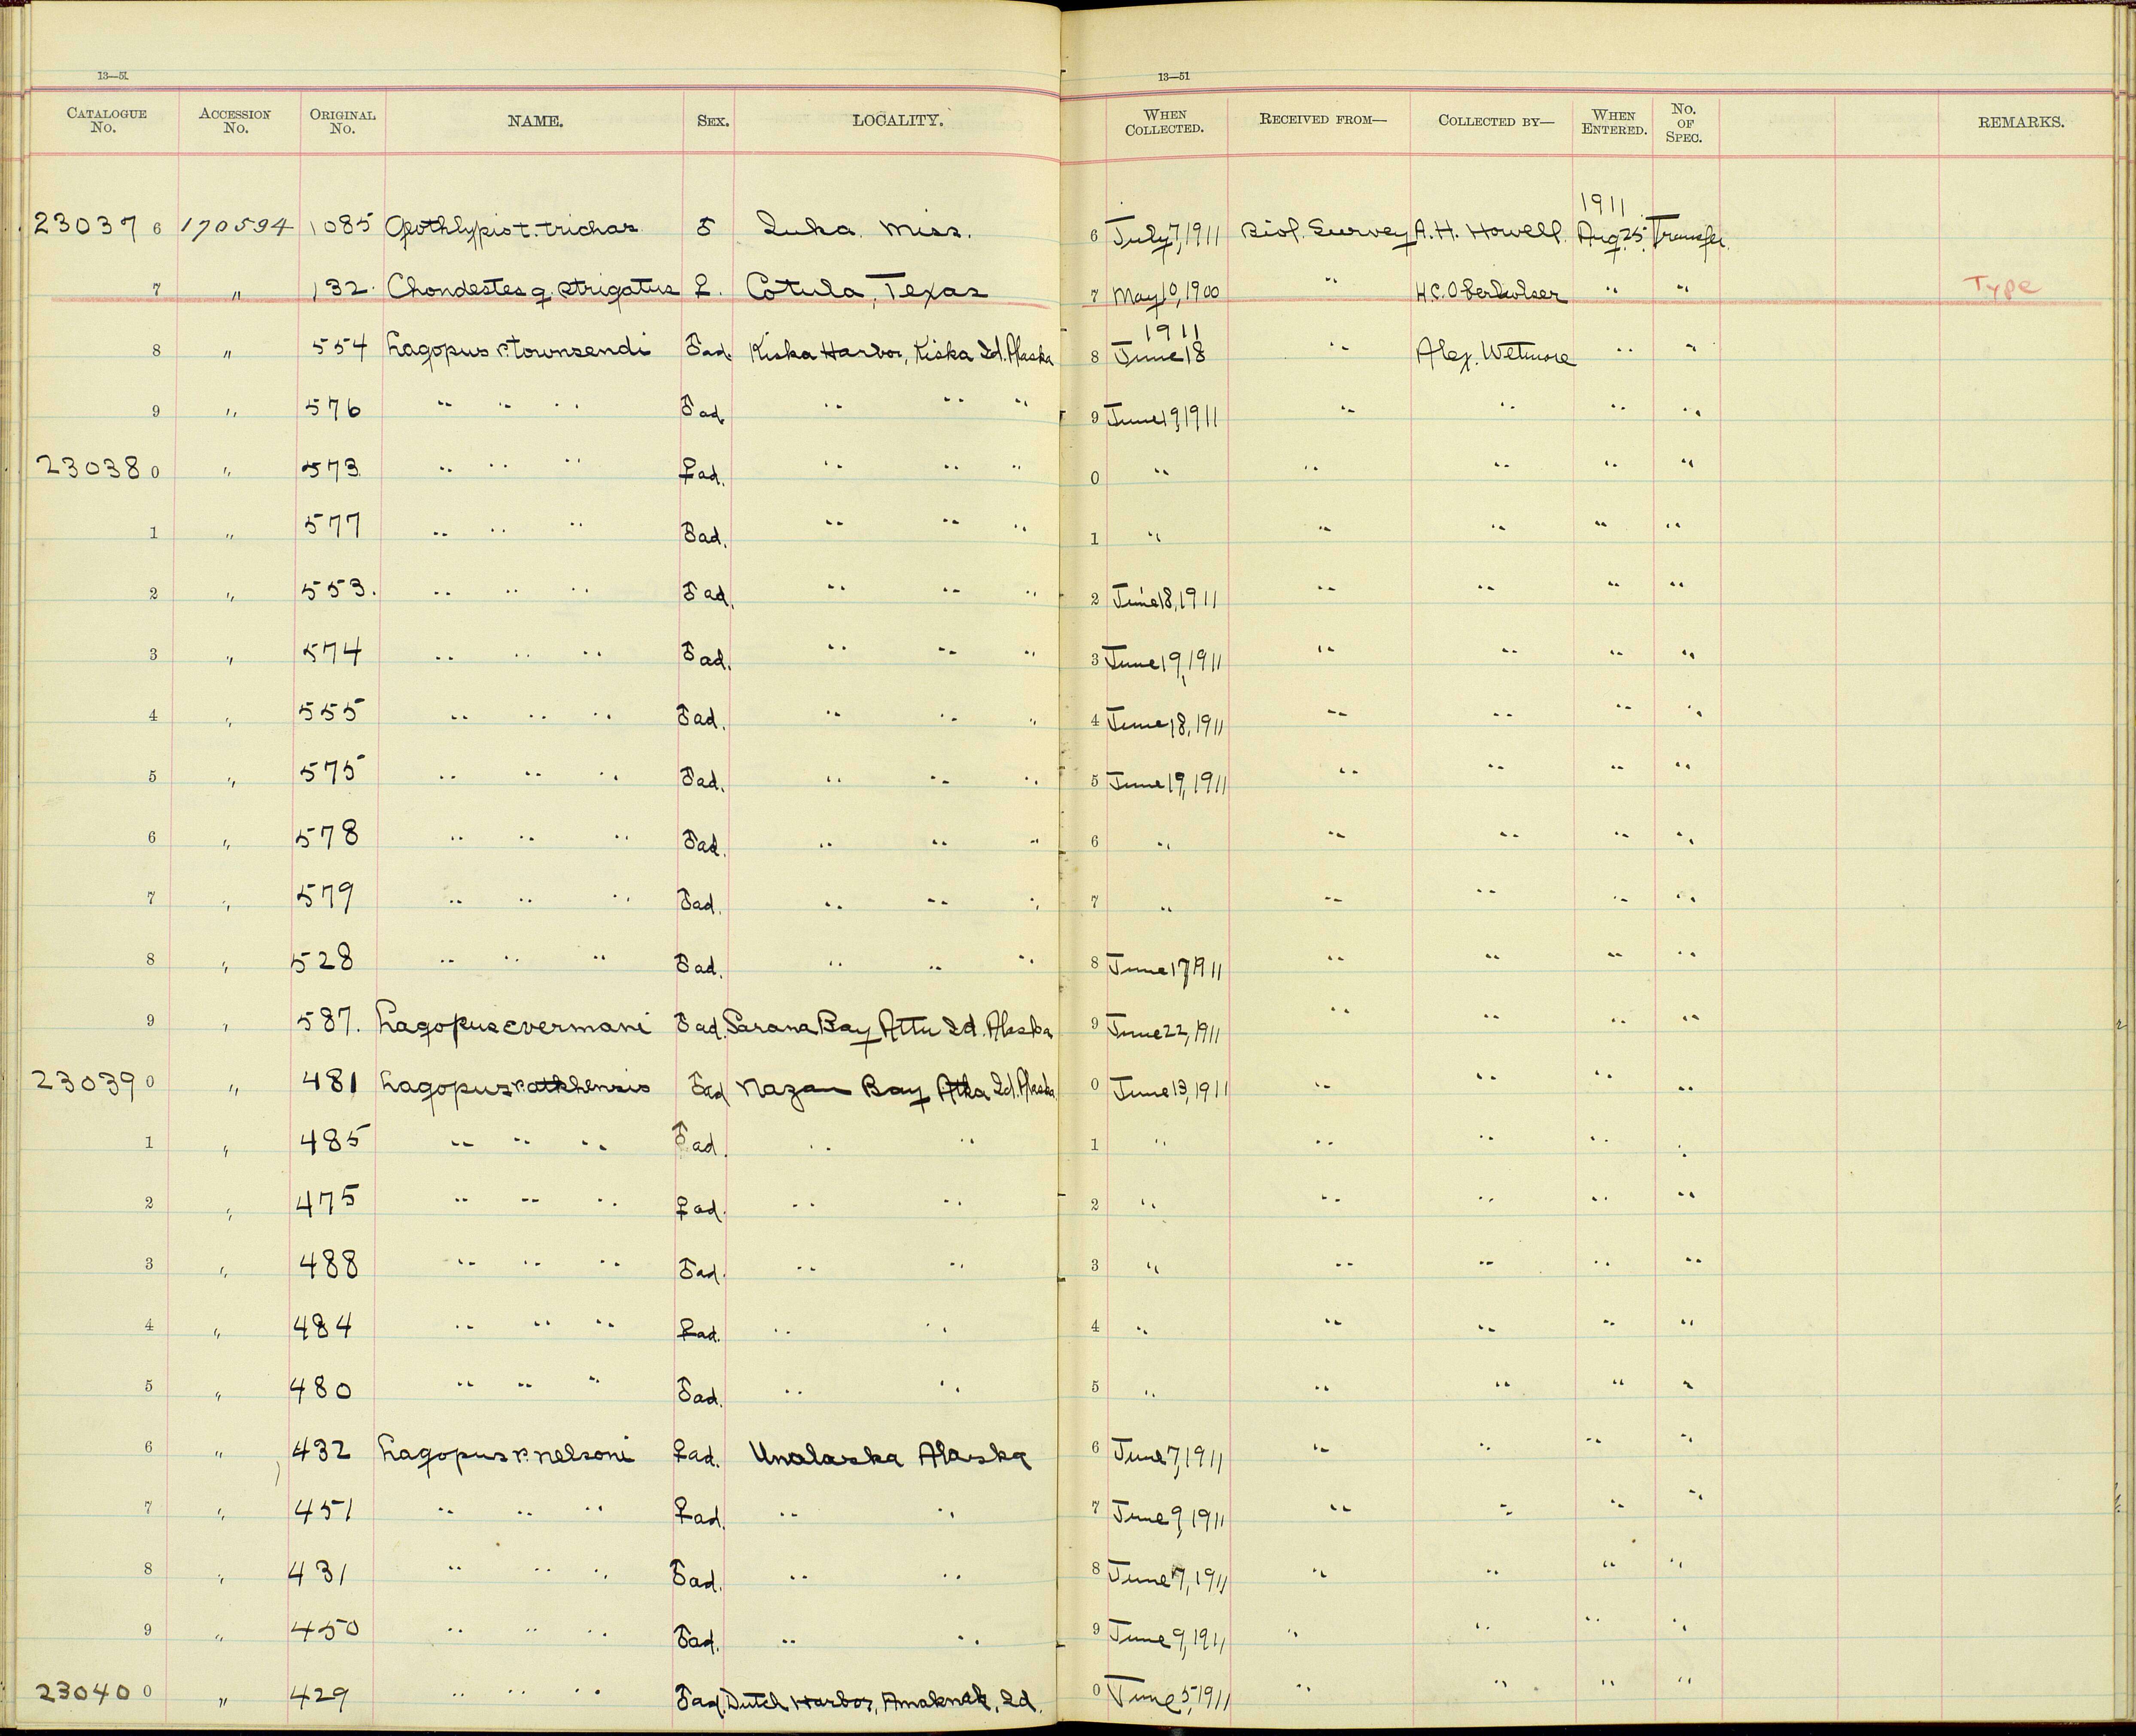 13—51 13—51
CATALOGUE No. ACCESSION No. ORIGINAL No. NAME. SEX. LOCALITY. WHEN COLLECTED. RECEIVED FROM— COLLECTED BY— WHEN ENTERED. No. OF SPEC. REMARKS.
1911
23037 6 170594 1085 Geothlypis t. trichas ♂ Iuka Miss. 6 July 7, 1911 Biol. Survey A. H. Howell. Aug. 25. Transfer.
7 " 132. Chondestes g. strigatus ♀. Cotula, Texas 7 May 10, 1900 " H.C. Oberholser " " Type
1911
8 " 554 Lagopus r. townsendi ♂ ad. Kiska Harbor, Kiska Id. Alaska 8 June 18 " Alex. Wetmore " "
9 " 576 " " " ♂ ad. " " " 9 June 19, 1911 " " " "
23038 0 " 573 " " " ♀ ad. " " " 0 " " " " "
1 " 577 " " " ♂ ad. " " " 1 " " " " "
2 " 553. " " " ♂ ad. " " " 2 June 18, 1911 " " " "
3 " 574 " " " ♂ ad. " " " 3 June 19, 1911 " " " "
4 " 555 " " " ♂ ad. " " " 4 June 18, 1911 " " " "
5 " 575 " " " ♂ ad. " " " 5 June 19, 1911 " " " "
6 " 578 " " " ♂ ad. " " " 6 " " " " "
7 " 579 " " " ♂ ad. " " " 7 " " " " "
8 " 528 " " " ♂ ad. " " " 8 June 17, 1911 " " " "
9 " 587. Lagopus evermani ♂ ad. Sarana Bay Attu Id. Alaska 9 June 22, 1911 " " " "
23039 0 " 481 Lagopus r. atkhensis ♂ ad Nazan Bay Atka Id. Alaska 0 June 13, 1911 " " " "
1 " 485 " " " ♂ ad. " " 1 " " " " "
2 " 475 " " " ♀ ad. " " 2 " " " " "
3 " 488 " " " ♂ ad. " " 3 " " " " "
4 " 484 " " " ♀ ad. " " 4 " " " " "
5 " 480 " " " ♂ ad. " " 5 " " " " "
6 " 432 Lagopus r. nelsoni ♀ ad. Unalaska Alaska 6 June 7, 1911 " " " "
7 " 451 " " " ♀ ad. " " 7 June 9, 1911 " " " "
8 " 431 " " " ♂ ad. " " 8 June 7, 1911 " " " "
9 " 450 " " " ♂ ad. " " 9 June 9, 1911 " " " "
23040 0 " 429 " " " ♂ ad. Dutch Harbor, Amaknak, Id. 0 June 5, 1911 " " " "